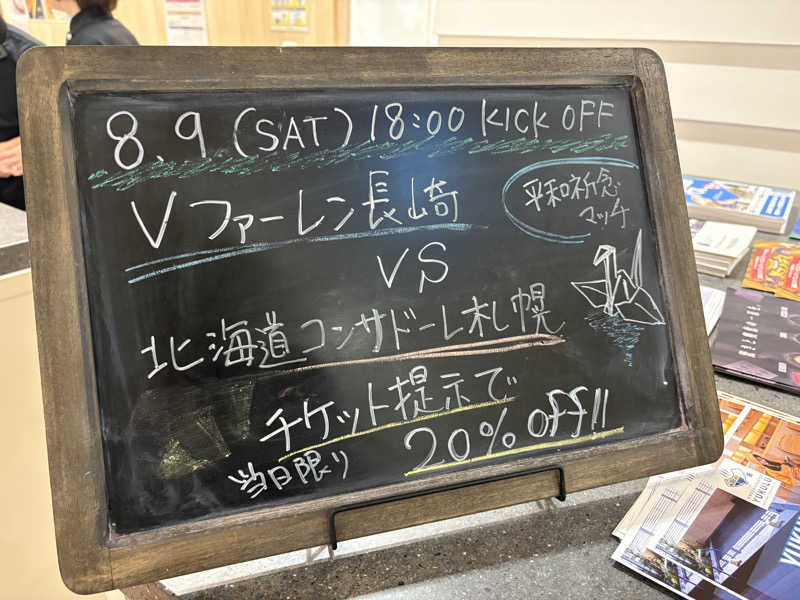 8.9 (SAT) 18:00 KICK OFF
Vファーレン長崎
平和祈念
マッチ
VS
北海道コンサドーレ札幌
チケット提示で
当日限り 20% off!!
YUKULU